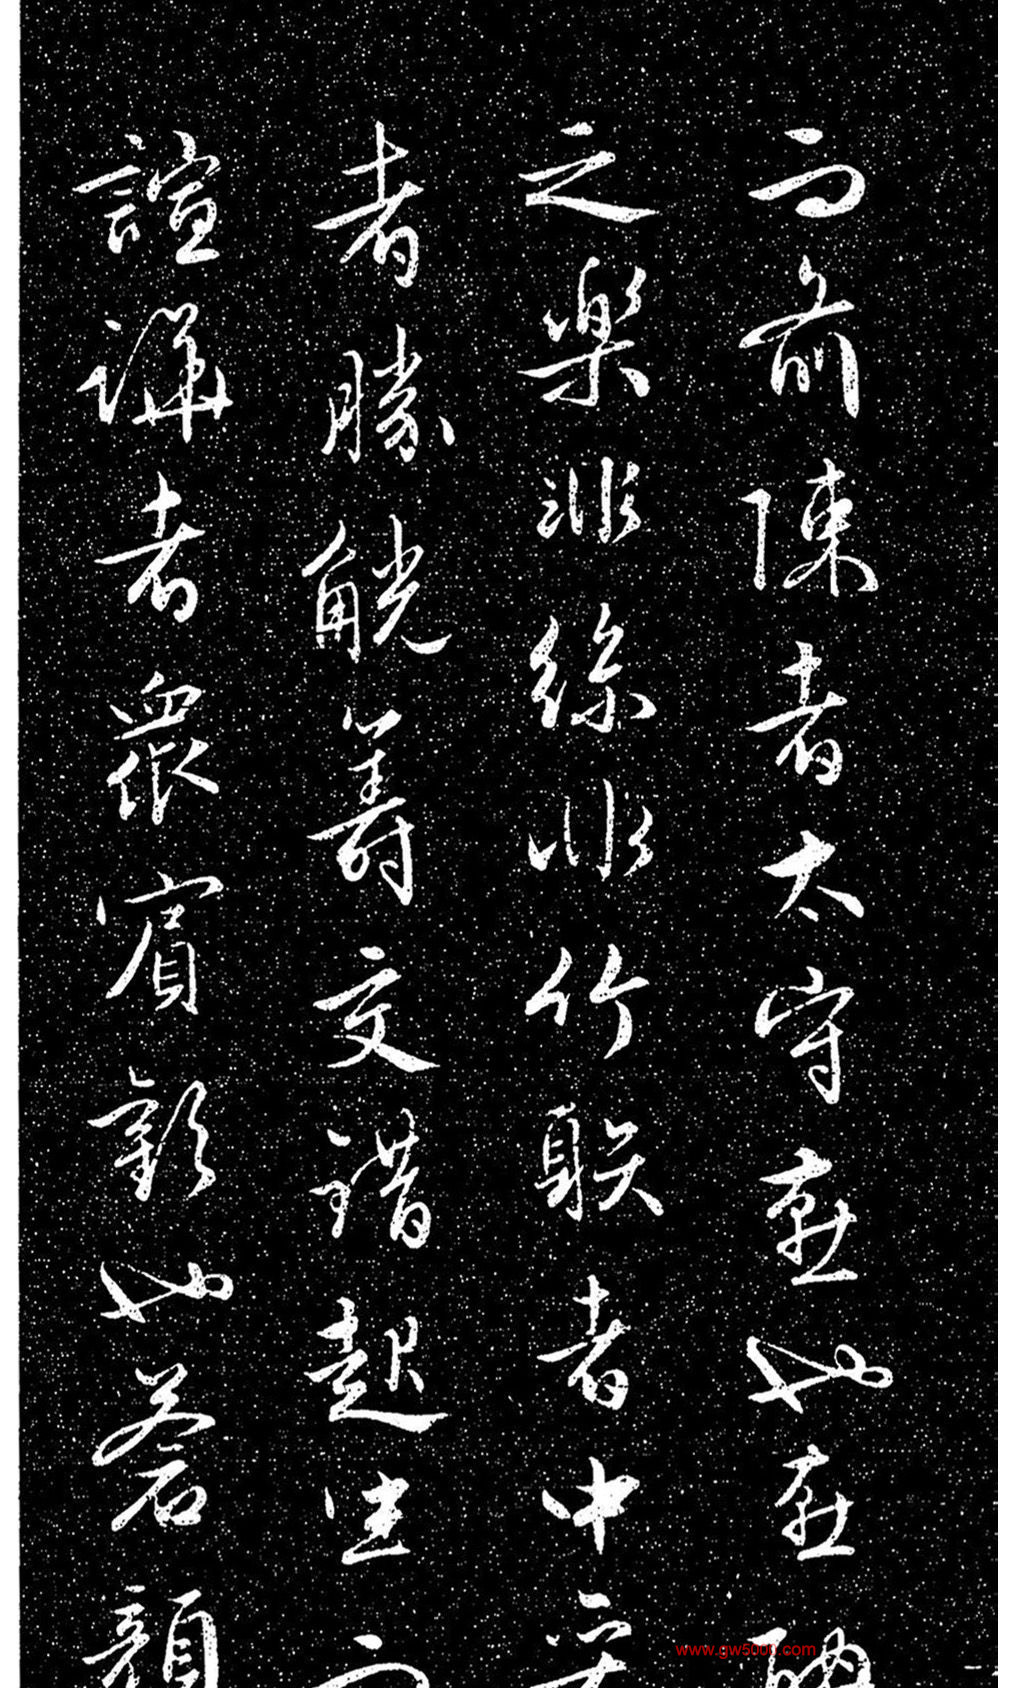 而前陳者太守宴也宴酣
之樂非絲非竹射者中弈
者勝觥籌交錯起坐而
諠譁者衆賓歡也蒼顏
www.gw5000.com